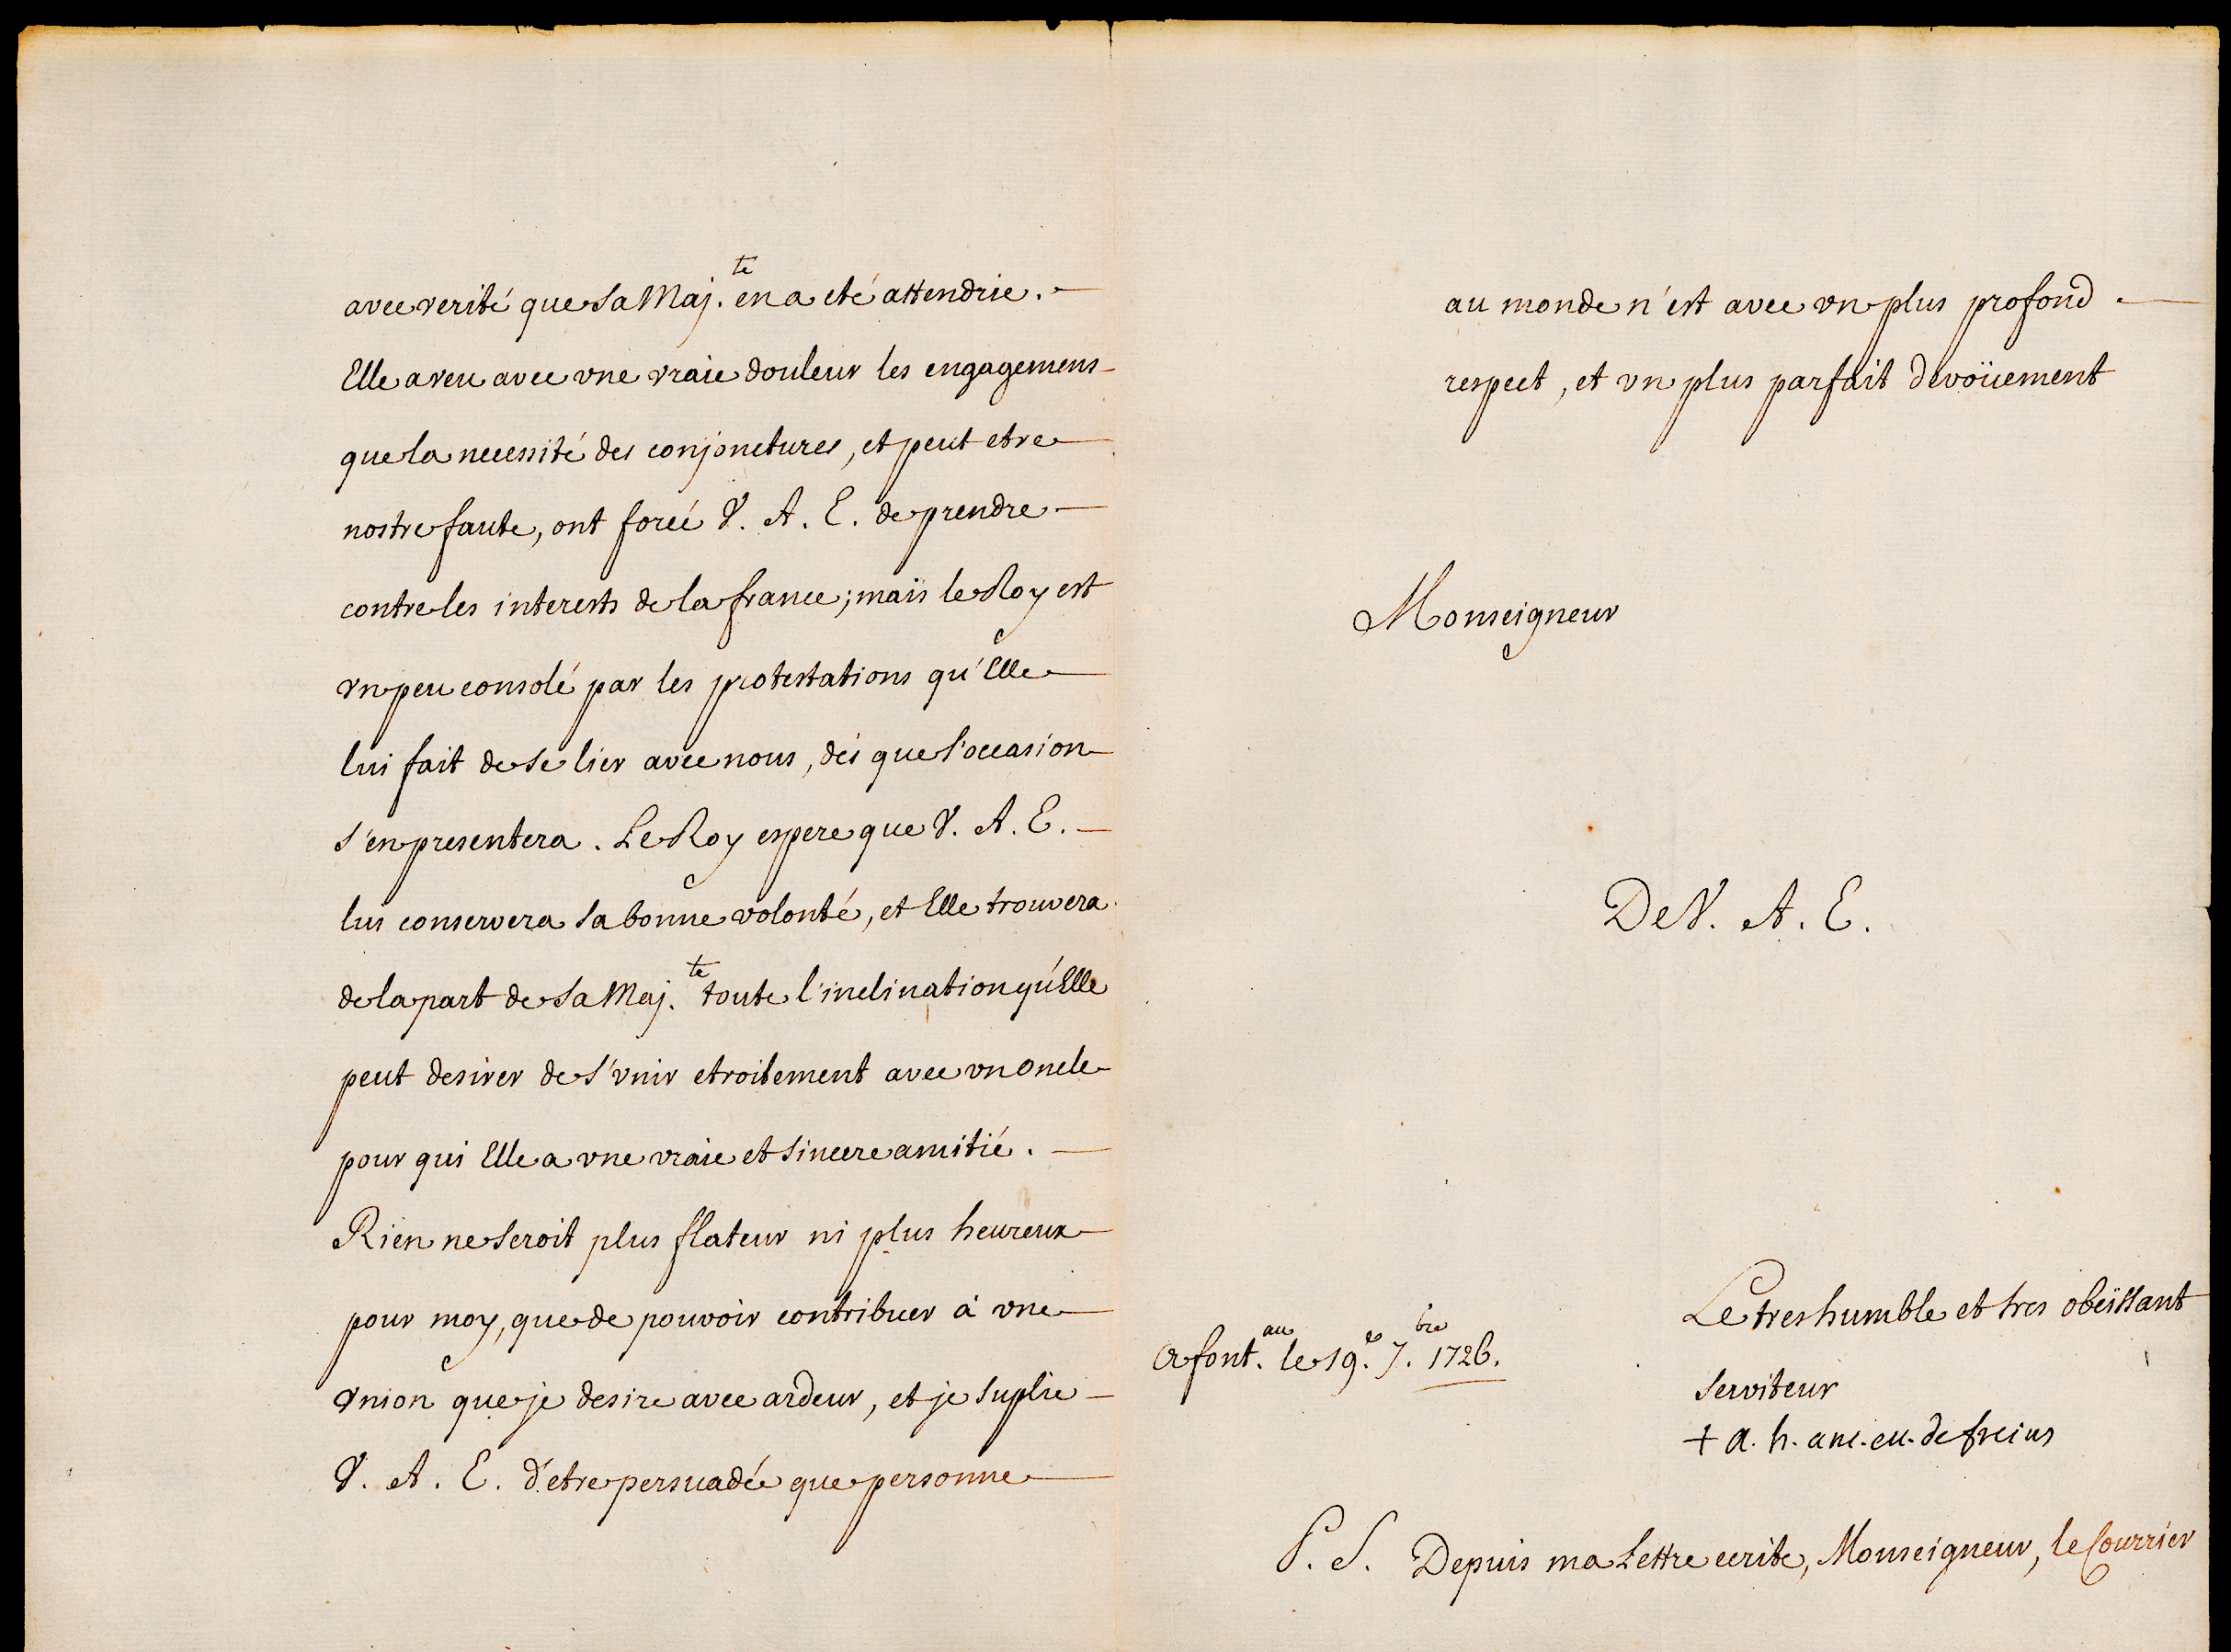 avec verité que Sa Maj.te en a eté attendrie.
Elle a veu avec vne vraie douleur les engagemens
que la necessité des conjonctures, et peut etre
nostre faute, ont forcé V. A. E. de prendre
contre les interests de la france; mais le Roy est
vn peu consolé par les protestations qu'Elle
lui fait de se lier avec nous, dés que l'occasion
s'en presentera. Le Roy espere que V. A. E.
lui conservera sa bonne volonté, et Elle trouvera
de la part de Sa Maj.te toute l'inclination qu'Elle
peut desirer de s'vnir etroitement avec vn Oncle
pour qui Elle a vne vraie et sincere amitié.
Rien ne seroit plus flateur ni plus heureux
pour moy, que de pouvoir contribuer à vne
vnion que je desire avec ardeur, et je suplie
V. A. E. d'etre persuadée que personne
au monde n'est avec vn plus profond
respect, et vn plus parfait devoüement
Monseigneur
De V. A. E.
Le tres humble et tres obeïssant
serviteur
A font.au le 19.e 7.bre 1726.
+ a. h. anc. eu. de freius
P. S. Depuis ma Lettre ecrite, Monseigneur, le Courrier